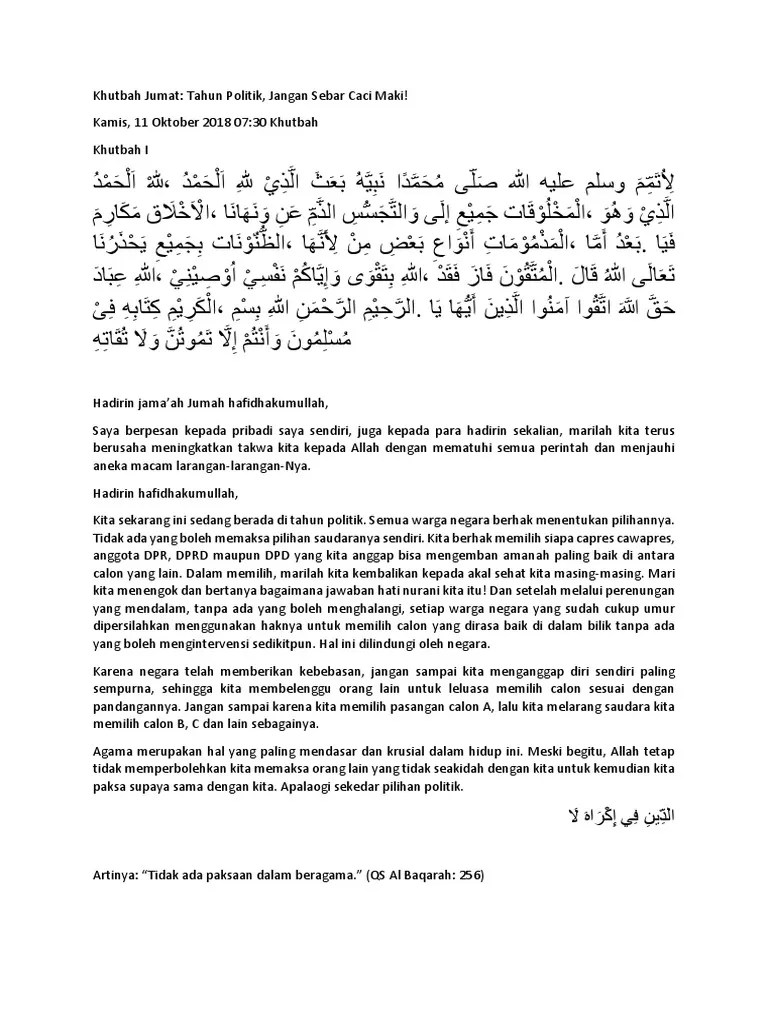 Khutbah Jumat: Tahun Politik, Jangan Sebar Caci Maki!
Kamis, 11 Oktober 2018 07:30 Khutbah
Khutbah I
اَلْحَمْدُ لِلهْ، اَلْحَمْدُ لِلهِ الَّذِيْ بَعَثَ نَبِيَّهُ مُحَمَّدًا صَلَّى الله عليه وسلم لِأُتَمِّمَ
مَكَارِمَ الْأَخْلَاق، وَنَهَانَا عَنِ الذَّمِّ وَالتَّجَسُّسِ إِلَى جَمِيْعِ الْمَخْلُوْقَات، وَهُوَ الَّذِيْ
يَحْذَرُنَا بِجَمِيْعِ الظُّنُوْنَات، لِأَنَّهَا مِنْ بَعْضِ أَنْوَاعِ الْمَذْمُوْمَات، أَمَّا بَعْدُ. فَيَا
عِبَادَ اللهِ، اُوْصِيْنِيْ نَفْسِيْ وَإِيَّاكُمْ بِتَقْوَى اللهِ، فَقَدْ فَازَ الْمُتَّقُوْنَ. قَالَ اللهُ تَعَالَى
فِىْ كِتَابِهِ الْكَرِيْمِ، بِسْمِ اللهِ الرَّحْمَنِ الرَّحِيْمِ. يَا أَيُّهَا الَّذِينَ آمَنُوا اتَّقُوا اللَّهَ حَقَّ
تُقَاتِهِ وَلَا تَمُوتُنَّ إِلَّا وَأَنْتُمْ مُسْلِمُونَ
Hadirin jama’ah Jumah hafidhakumullah,
Saya berpesan kepada pribadi saya sendiri, juga kepada para hadirin sekalian, marilah kita terus
berusaha meningkatkan takwa kita kepada Allah dengan mematuhi semua perintah dan menjauhi
aneka macam larangan-larangan-Nya.
Hadirin hafidhakumullah,
Kita sekarang ini sedang berada di tahun politik. Semua warga negara berhak menentukan pilihannya.
Tidak ada yang boleh memaksa pilihan saudaranya sendiri. Kita berhak memilih siapa capres cawapres,
anggota DPR, DPRD maupun DPD yang kita anggap bisa mengemban amanah paling baik di antara
calon yang lain. Dalam memilih, marilah kita kembalikan kepada akal sehat kita masing-masing. Mari
kita menengok dan bertanya bagaimana jawaban hati nurani kita itu! Dan setelah melalui perenungan
yang mendalam, tanpa ada yang boleh menghalangi, setiap warga negara yang sudah cukup umur
dipersilahkan menggunakan haknya untuk memilih calon yang dirasa baik di dalam bilik tanpa ada
yang boleh mengintervensi sedikitpun. Hal ini dilindungi oleh negara.
Karena negara telah memberikan kebebasan, jangan sampai kita menganggap diri sendiri paling
sempurna, sehingga kita membelenggu orang lain untuk leluasa memilih calon sesuai dengan
pandangannya. Jangan sampai karena kita memilih pasangan calon A, lalu kita melarang saudara kita
memilih calon B, C dan lain sebagainya.
Agama merupakan hal yang paling mendasar dan krusial dalam hidup ini. Meski begitu, Allah tetap
tidak memperbolehkan kita memaksa orang lain yang tidak seakidah dengan kita untuk kemudian kita
paksa supaya sama dengan kita. Apalaogi sekedar pilihan politik.
لَا إِكْرَاهَ فِي الدِّينِ
Artinya: “Tidak ada paksaan dalam beragama.” (QS Al Baqarah: 256)